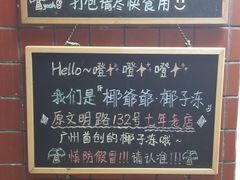 打包请尽快食用
yeah!
Hello~噔噔噔
我们是"椰爷爷·椰子冻
原文明路132号十年老店
广州首创的椰子冻哦~
慎防假冒!!!请认准!!!